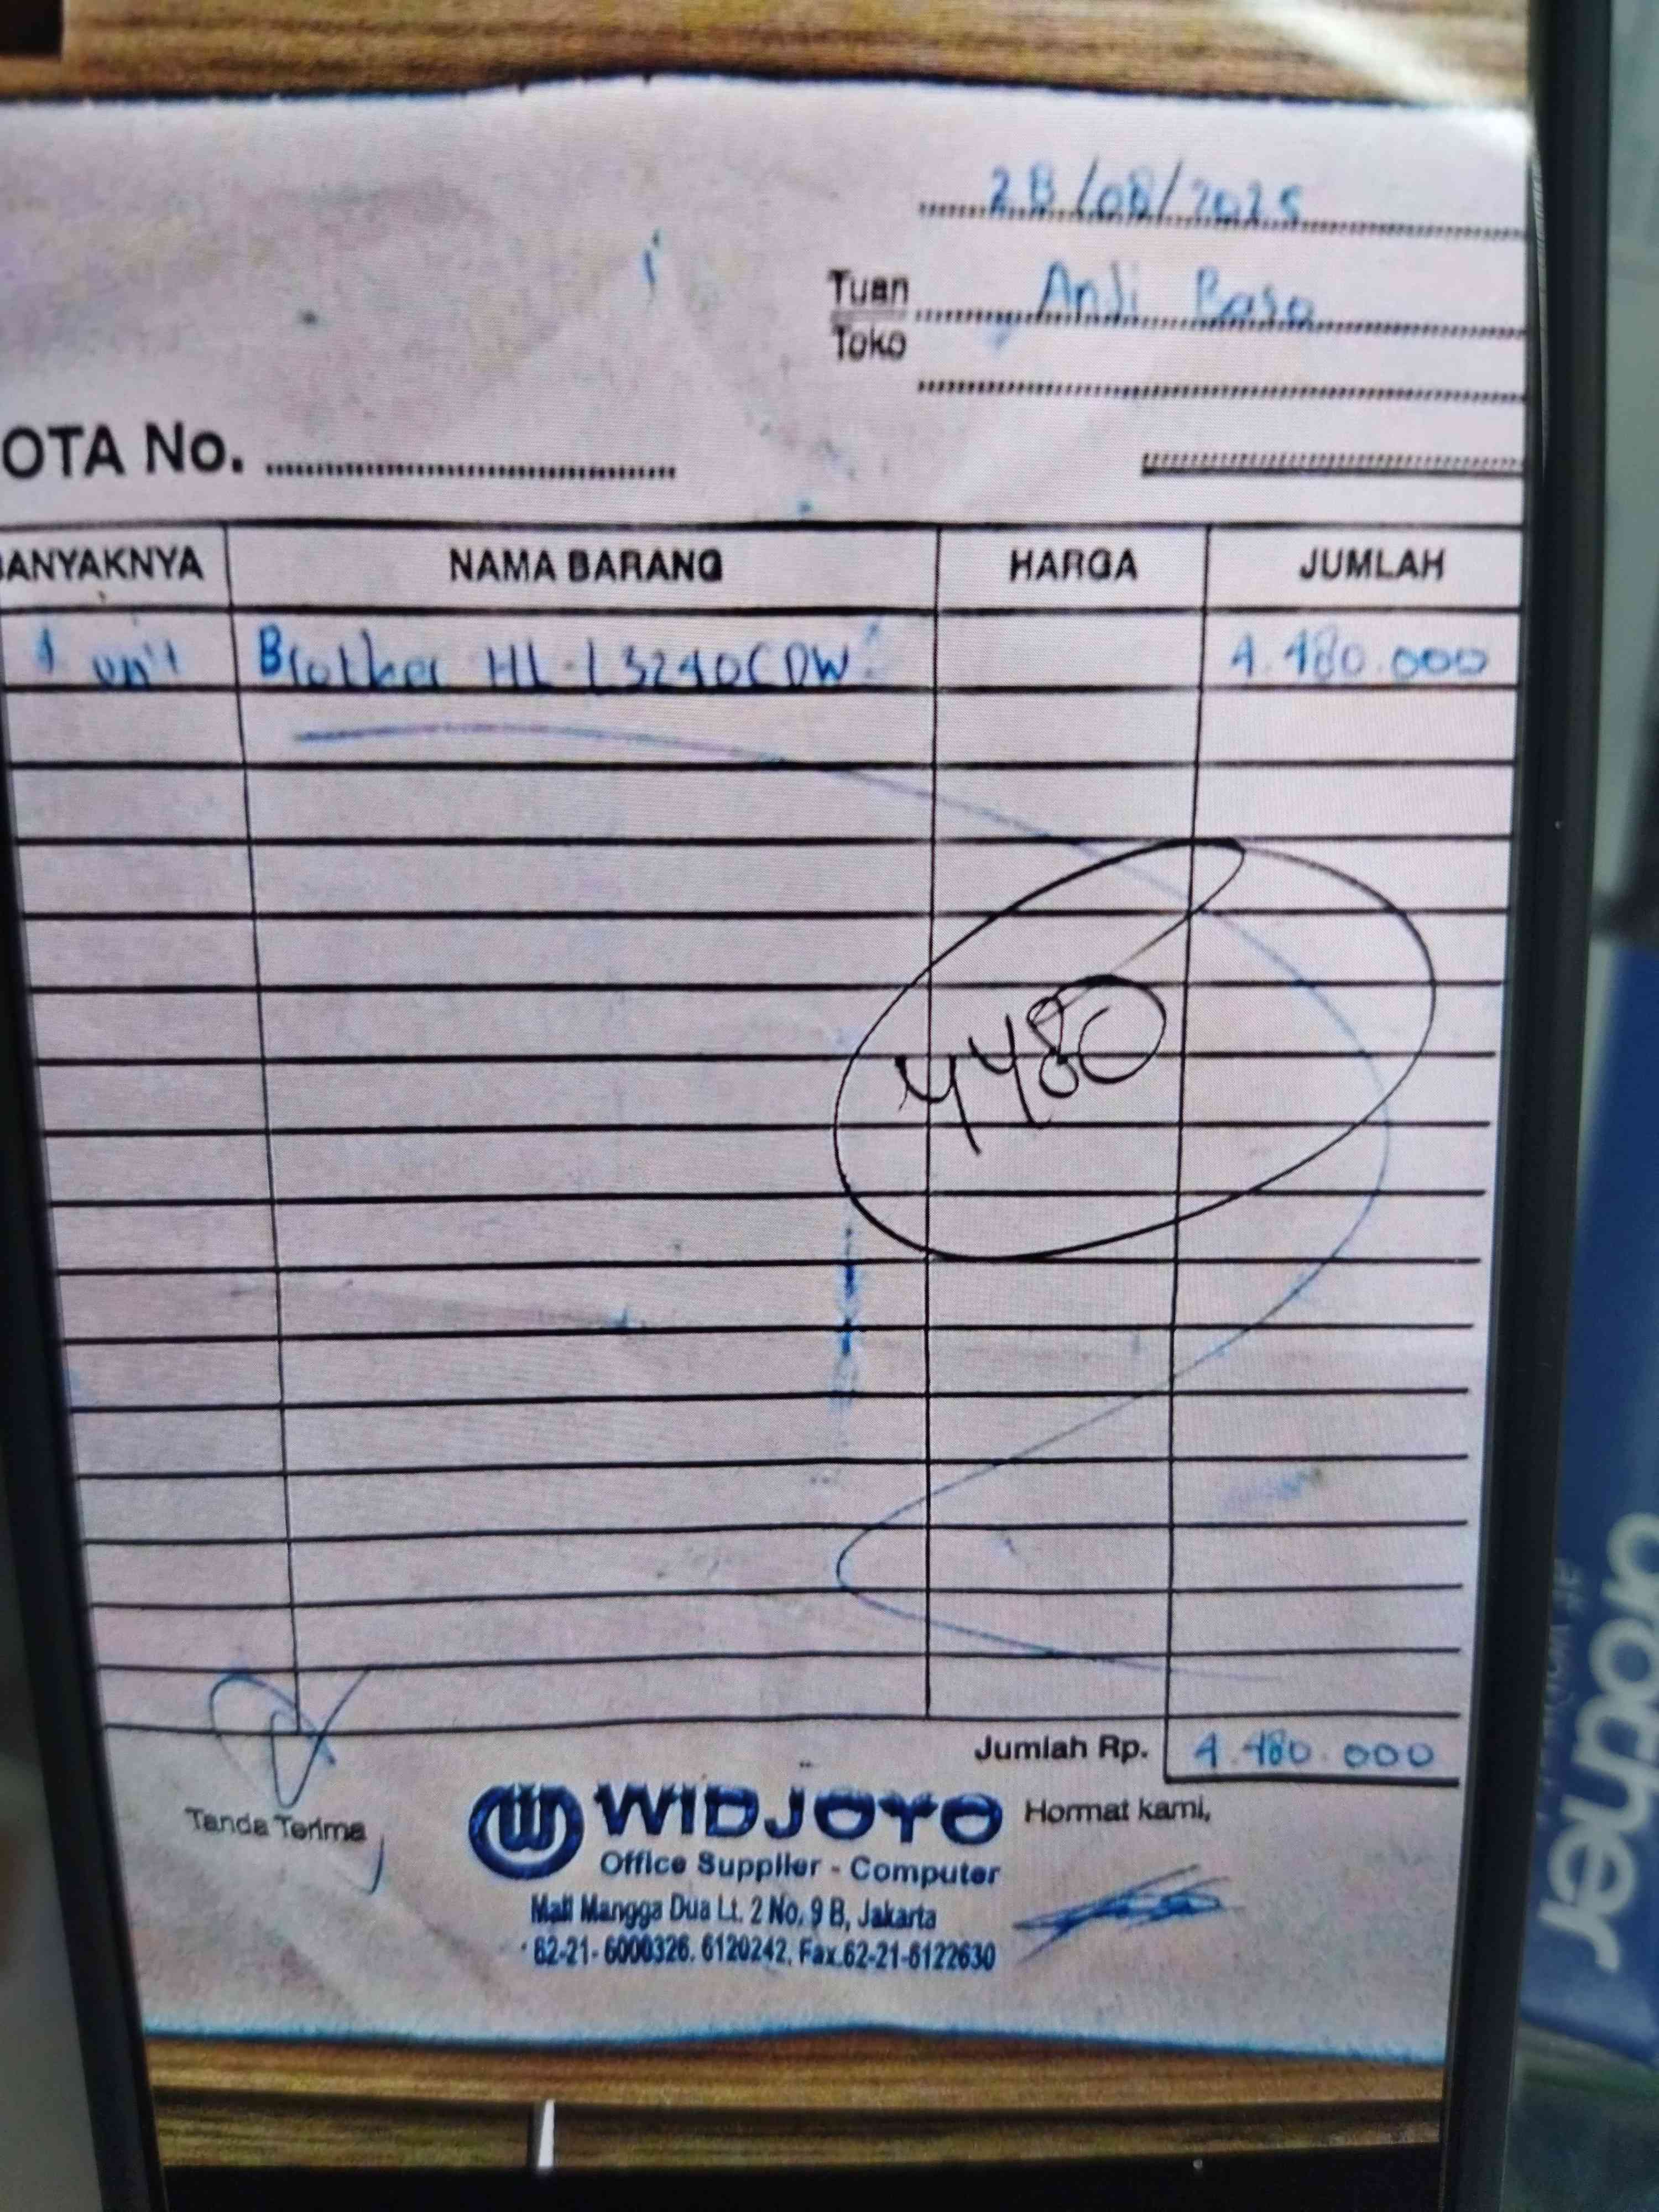 28/08/2025
Tuan Andi Baso
Toko
OTA No.
BANYAKNYA NAMA BARANG HARGA JUMLAH
1 unit Brother HL-L3240CDW 4.480.000
4480
Jumlah Rp. 4.480.000
Tanda Terima
Hormat kami,
WIDJOYO
Office Supplier - Computer
Mall Mangga Dua Lt. 2 No. 9 B, Jakarta
62-21-6000326. 6120242. Fax.62-21-6122630
brother